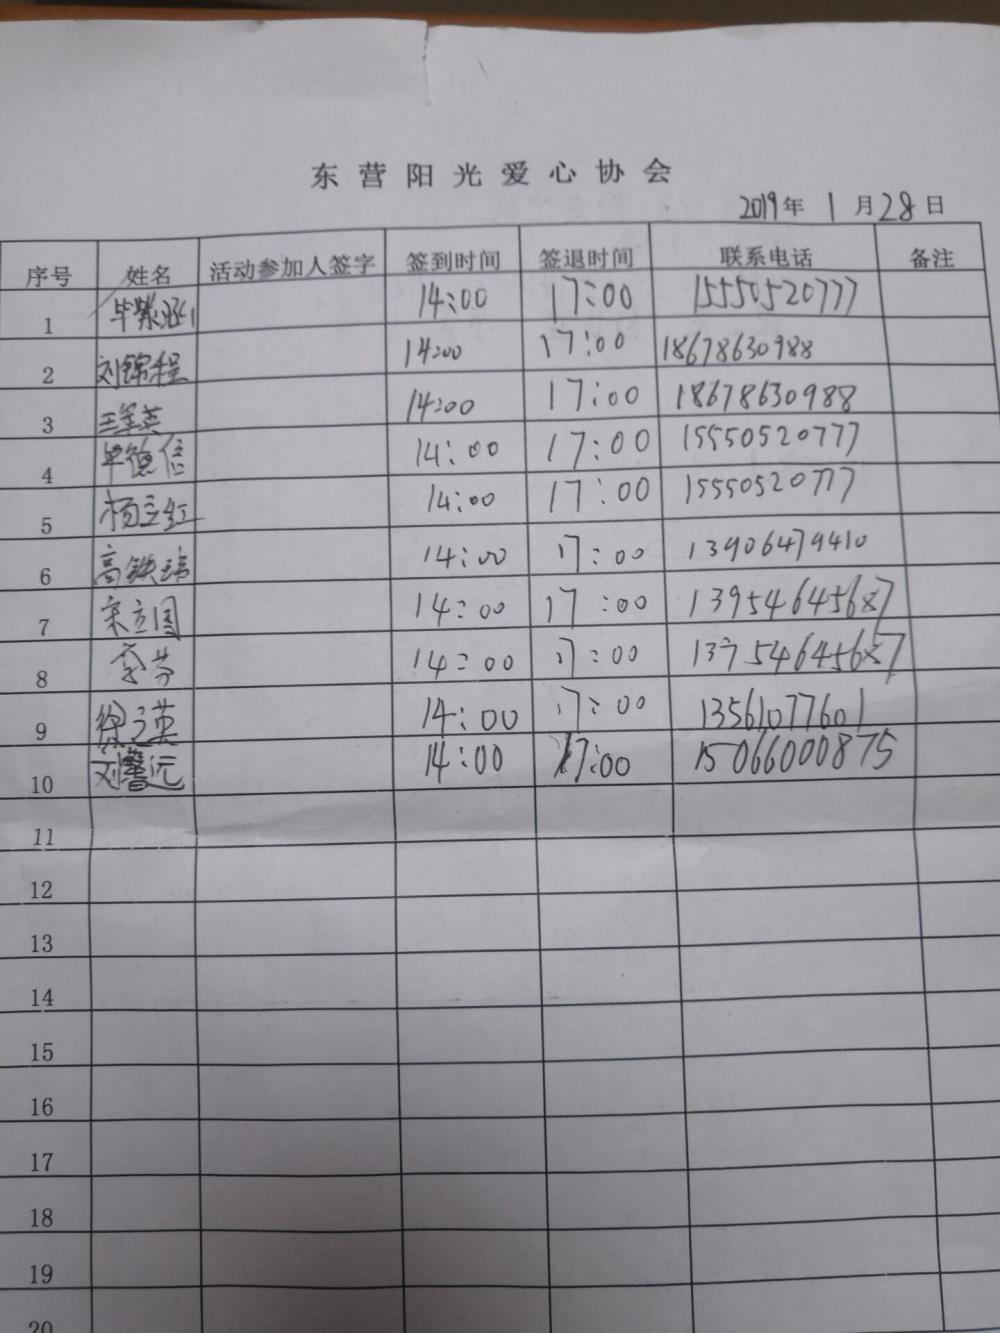 东营阳光爱心协会
2019年 1月28日
序号 姓名 活动参加人签字 签到时间 签退时间 联系电话 备注
1 毕紫涵 14:00 17:00 15550520777
2 刘锦程 14:00 17:00 18678630988
3 14:00 17:00 18678630988
4 毕德信 14:00 17:00 15550520777
5 杨立红 14:00 17:00 15550520777
6 高铁 14:00 17:00 13906479410
7 宋立国 14:00 17:00
8 李芬 14:00 17:00
9 徐立英 14:00 17:00 13561077601
10 刘馨远 14:00 17:00 15066000875
11
12
13
14
15
16
17
18
19
20